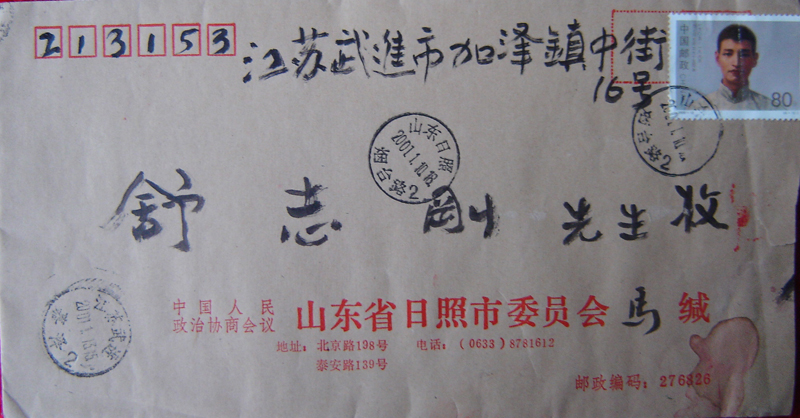 213153
江苏武進市加泽鎮中街
16号
中国邮政
80
山东日照
2001.1.10.18
舒志刚先生收
中国人民
政治协商会议
山东省日照市委员会 马 缄
地址：北京路198号 电话：（0633）8781612
泰安路139号
邮政编码：276826
江苏武进